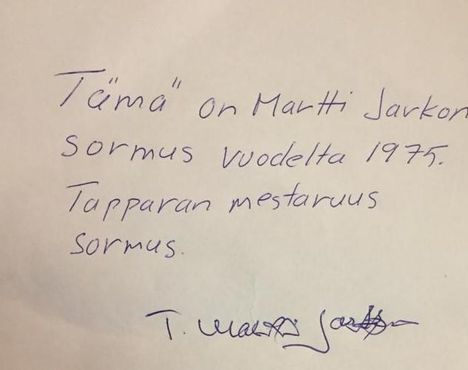 Tämä" on Martti Jarkon
sormus vuodelta 1975.
Tapparan mestaruus
sormus.
T. Martti Jarkko